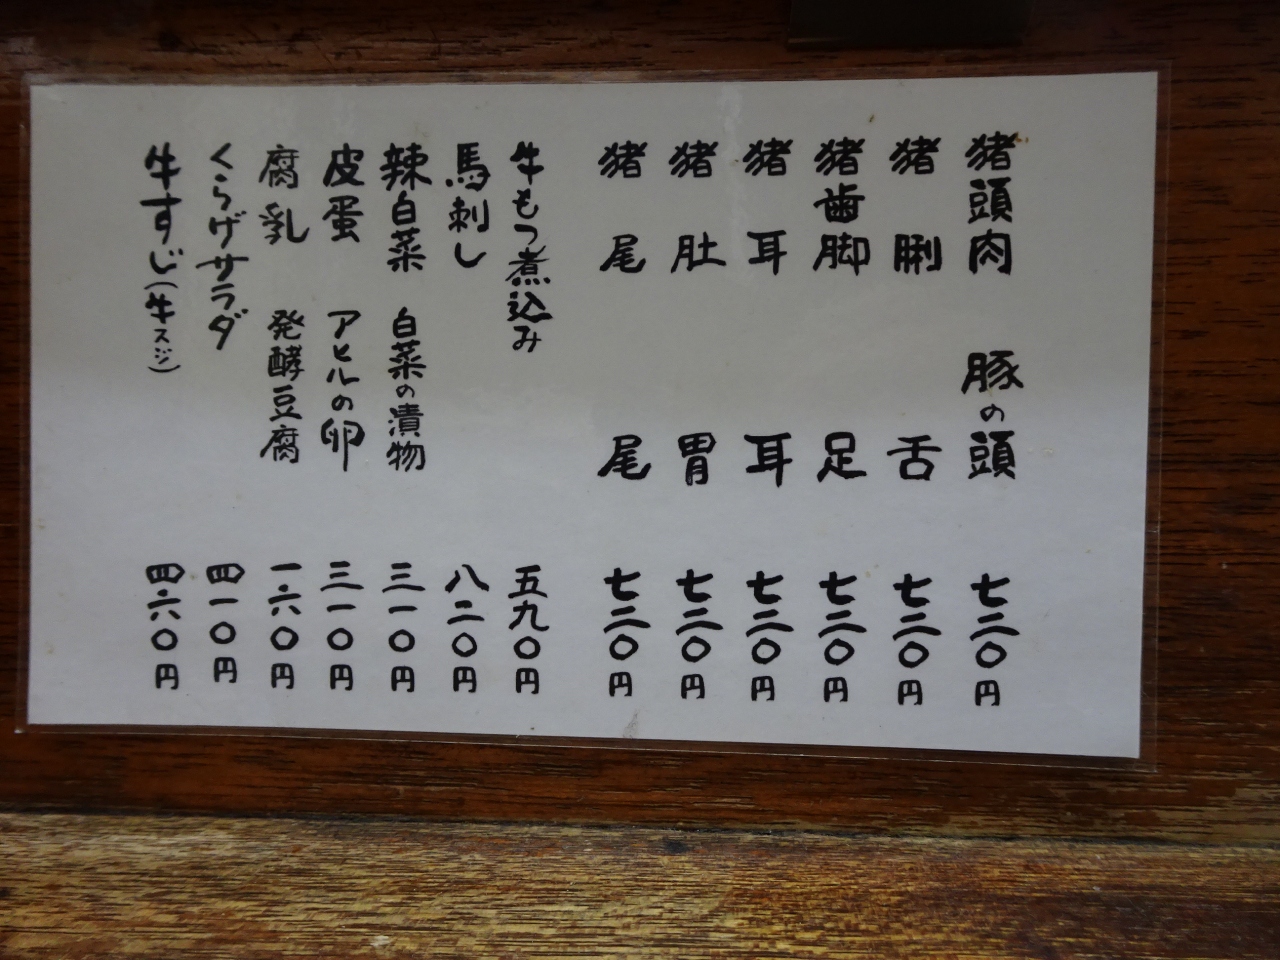 猪頭肉 豚の頭 七二〇円
猪脷 舌 七二〇円
猪歯脚 足 七二〇円
猪耳 耳 七二〇円
猪肚 胃 七二〇円
猪尾 尾 七二〇円
牛もつ煮込み 五九〇円
馬刺し 八二〇円
辣白菜 白菜の漬物 三一〇円
皮蛋 アヒルの卵 三一〇円
腐乳 発酵豆腐 一六〇円
くらげサラダ 四一〇円
牛すじ(牛スジ) 四六〇円